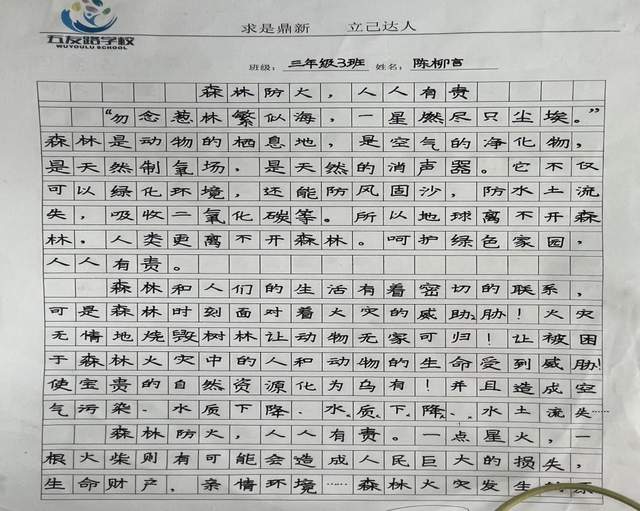 五友路学校
WUYOULU SCHOOL
求是鼎新 立己达人
班级：三年级3班 姓名：陈柳言
森林防火，人人有责
“勿念惹林繁似海，一星燃尽只尘埃。”
森林是动物的栖息地，是空气的净化物，
是天然制氧场，是天然的消声器。它不仅
可以绿化环境，还能防风固沙，防水土流
失，吸收二氧化碳等。所以地球离不开森
林，人类更离不开森林。呵护绿色家园，
人人有责。
森林和人们的生活有着密切的联系，
可是森林时刻面对着火灾的威胁！火灾
无情地烧毁树林让动物无家可归！让被困
于森林火灾中的人和动物的生命受到威胁！
使宝贵的自然资源化为乌有！并且造成空
气污染、水质下降、水质下降、水土流失……
森林防火，人人有责。一点星火，一
根火柴则有可能会造成人民巨大的损失，
生命财产，亲情环境……森林火灾发生的原